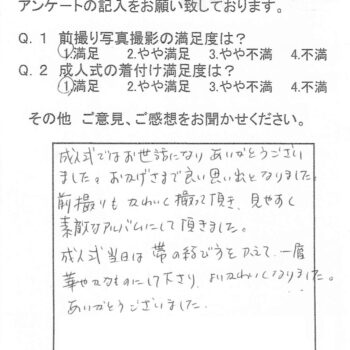 アンケートの記入をお願い致しております。
Q.1 前撮り写真撮影の満足度は?
1.満足 2.やや満足 3.やや不満 4.不満
Q.2 成人式の着付け満足度は?
1.満足 2.やや満足 3.やや不満 4.不満
その他 ご意見、ご感想をお聞かせください。
成人式ではお世話になり ありがとうござい
ました。おかげさまで良い思い出となりました。
前撮りも かわいく撮って頂き、見やすく
素敵なアルバムにして頂きました。
成人式当日は 帯の結び方を変えて、一層
華やかなものにして下さり、よりかわいくなりました。
ありがとうございました。